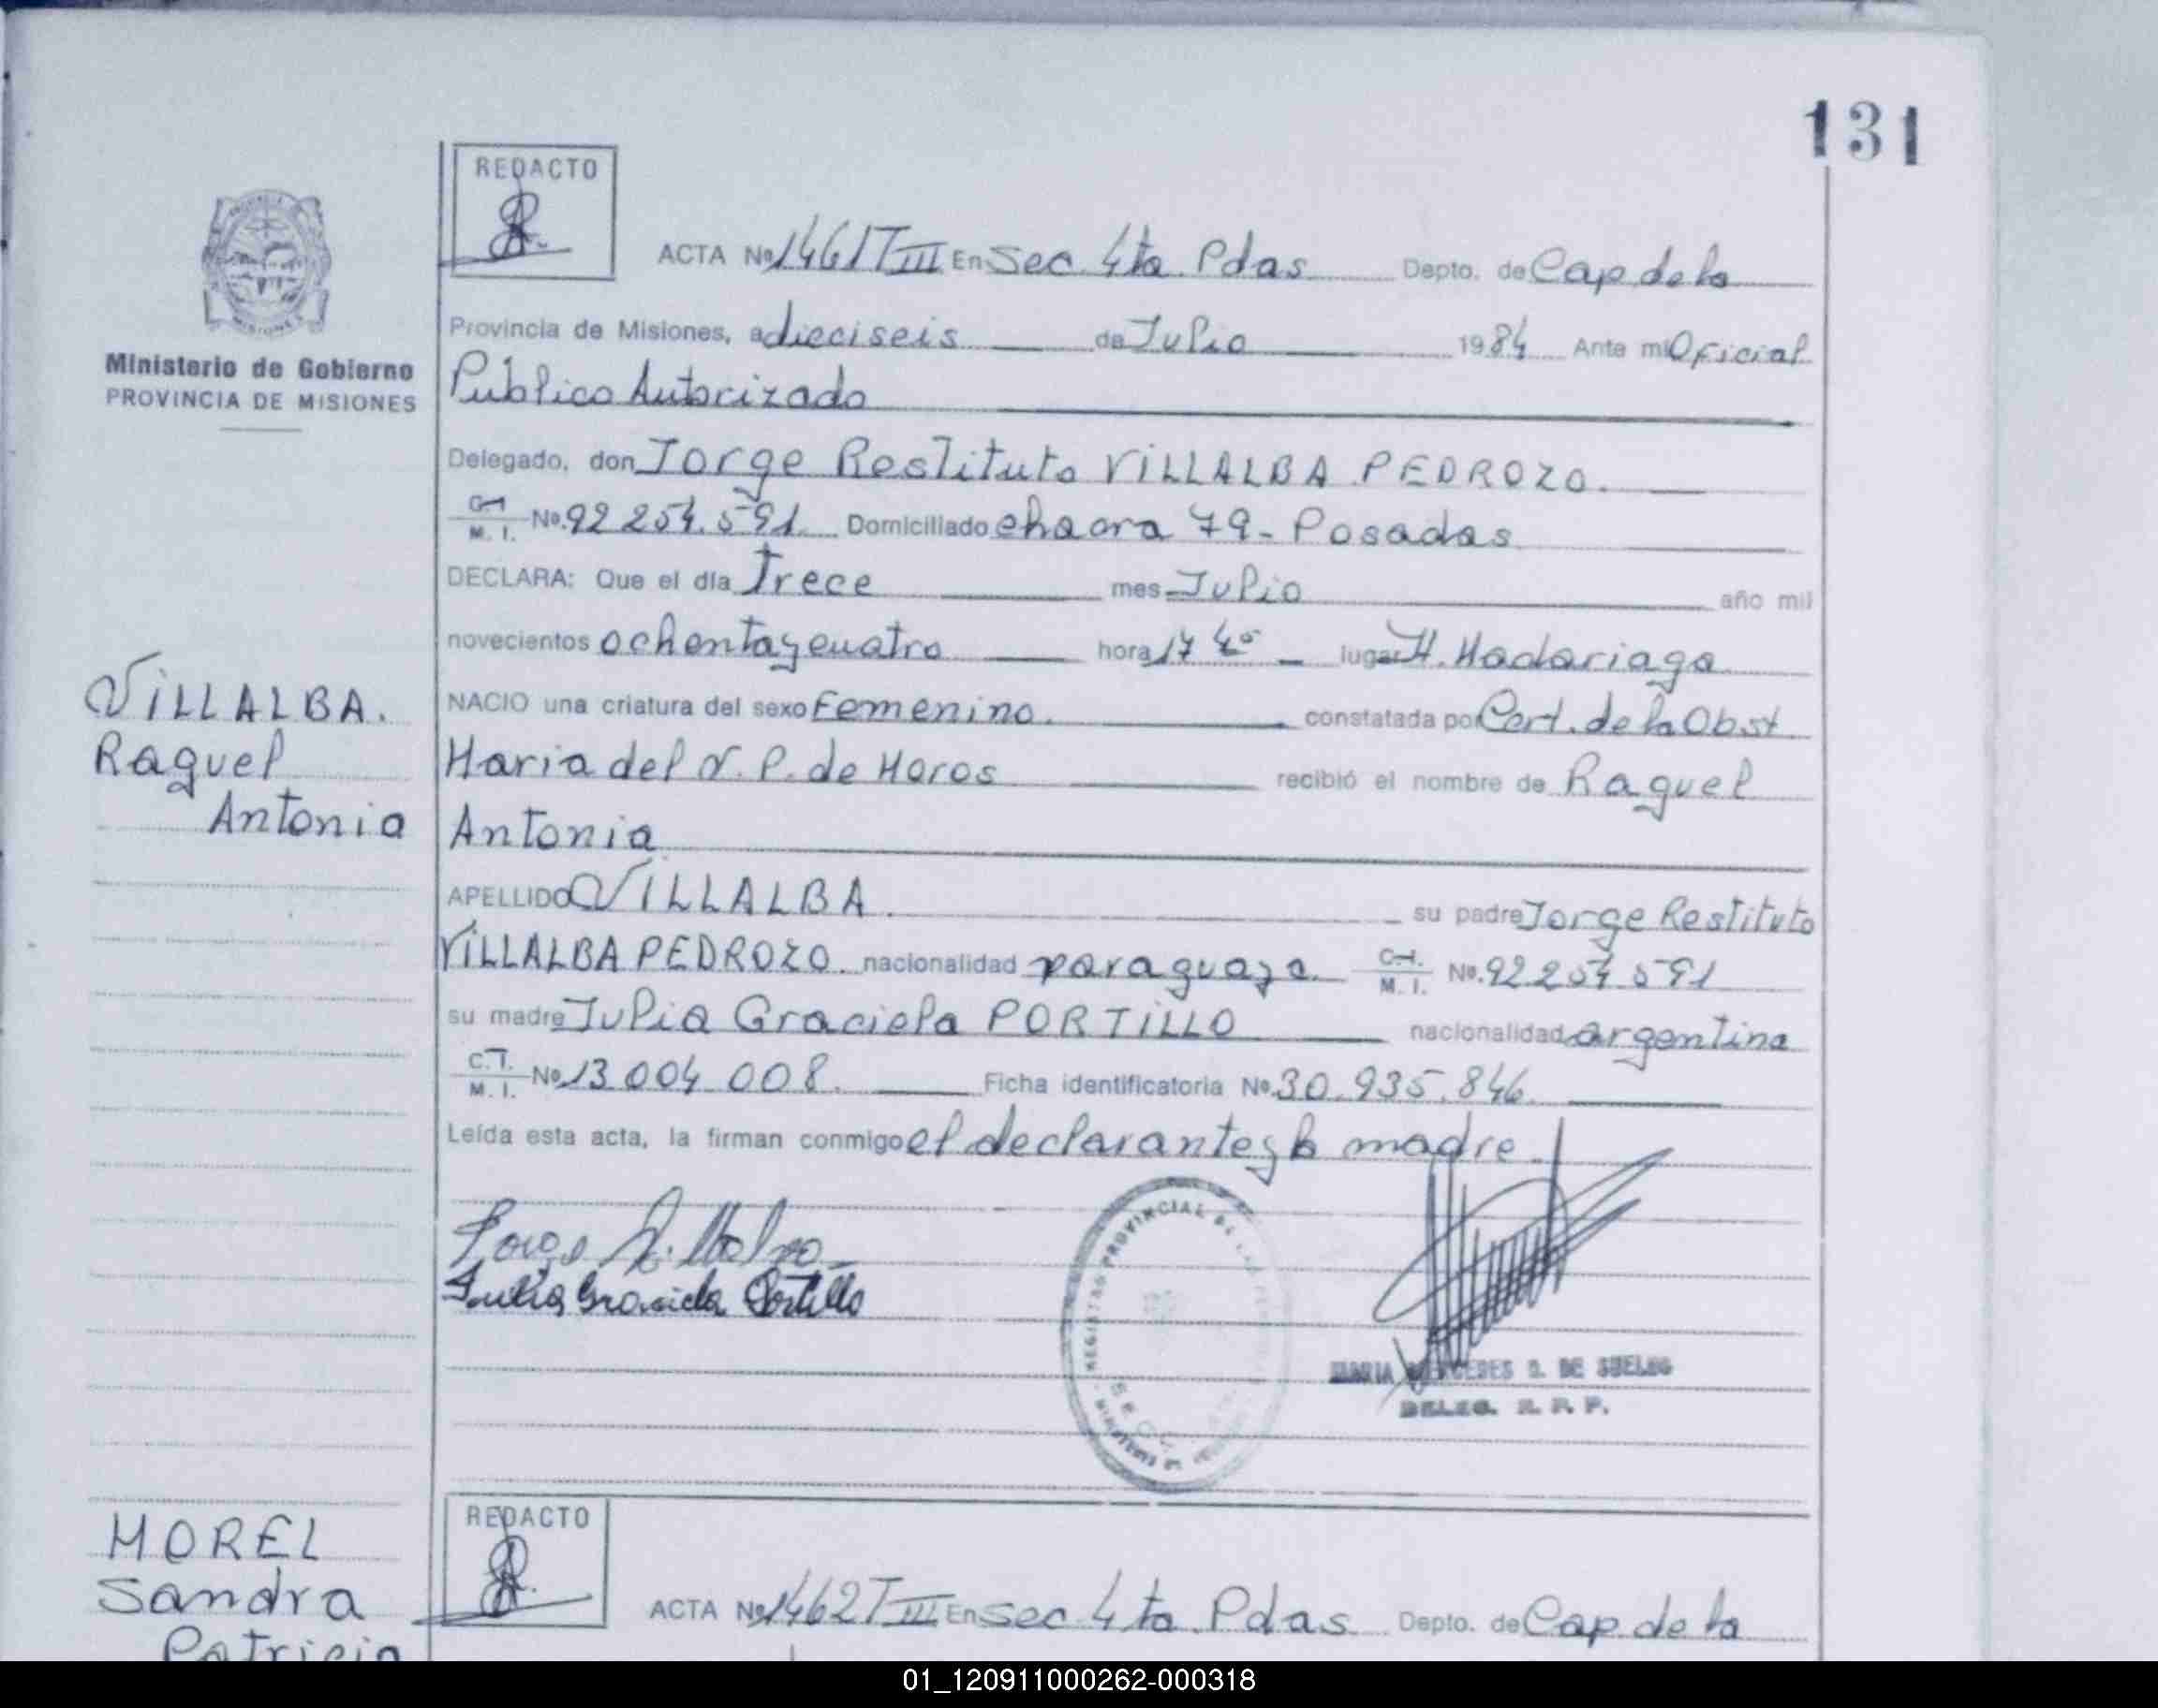 131
REDACTO
ACTA Nº 1461 T III En Sec. 4ta. Pdas Depto. de Cap. de la
Provincia de Misiones, a dieciseis de Julio 1984 Ante mi Oficial
Público Autorizado
Ministerio de Gobierno
PROVINCIA DE MISIONES
Delegado, don Jorge Restituto VILLALBA PEDROZO.
C.I.
M. I. No. 92 254.591 Domiciliado chacra 79 - Posadas
DECLARA: Que el día Trece mes Julio año mil
novecientos ochenta y cuatro hora 17 40 lugar H. Madariaga
NACIO una criatura del sexo Femenino. constatada por Cert. de la Obst
Maria del V. P. de Moros recibió el nombre de Raquel
Antonia
VILLALBA.
Raquel
Antonia
APELLIDO VILLALBA. su padre Jorge Restituto
VILLALBA PEDROZO. nacionalidad paraguaya. C.I.
M. I. Nº. 92 254 591
su madre Julia Graciela PORTILLO nacionalidad argentina
C.I.
M. I. Nº 13 004 008. Ficha identificatoria Nº 30.935.846.
Leída esta acta, la firman conmigo el declarante y la madre.
Jorge Villalba
Julia Graciela Portillo
REGISTRO PROVINCIAL DE LAS
MARIA MERCEDES S. DE SUELDO
DELEG. R. P. P.
MOREL
Sandra
Patricia
REDACTO
ACTA Nº 1462 T III En Sec. 4ta. Pdas Depto. de Cap. de la
01_120911000262-000318